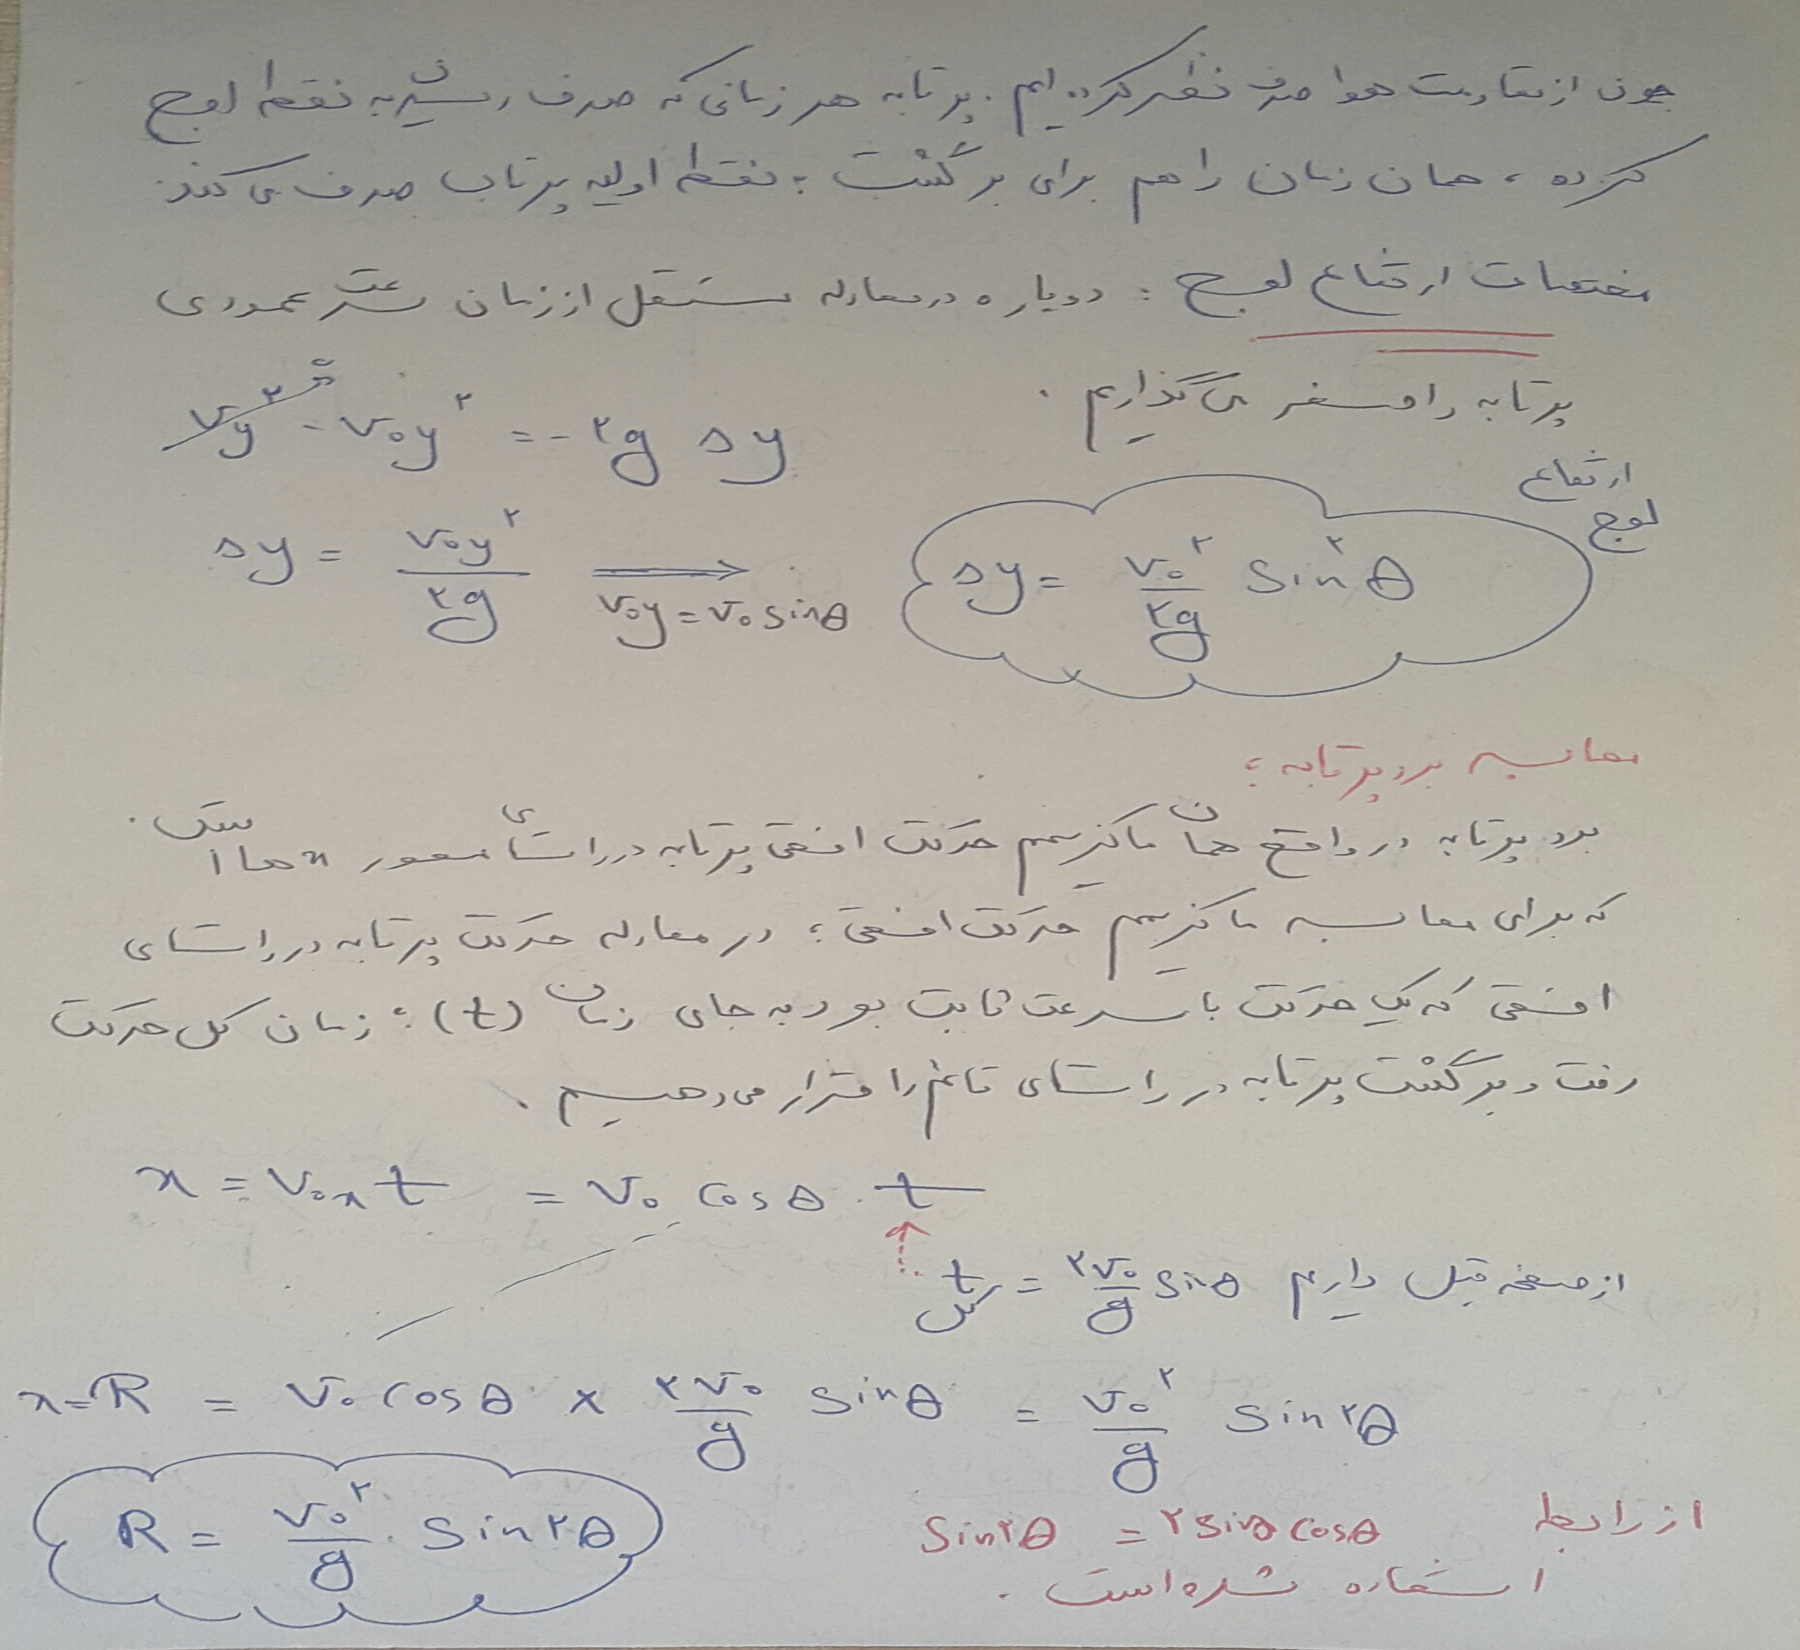 چون از مقاومت هوا صرف نظر کرده ایم. پرتابه هر زمانی که صرف رسیدن به نقطه اوج
کرده، همان زمان را هم برای برگشت به نقطه اولیه پرتاب صرف می کند.
مختصات ارتفاع اوج : دوباره در معادله مستقل از زمان سرعت عمودی
پرتابه را صفر می گذاریم.
Vy² - V₀y² = -۲g Δy
ارتفاع اوج
Δy = V₀y² / ۲g ⟹ V₀y = V₀ sinθ Δy = V₀² / ۲g Sin²θ
محاسبه برد پرتابه :
برد پرتابه در واقع همان ماکزیمم حرکت افقی پرتابه در راستای محور x ها است.
که برای محاسبه ماکزیمم حرکت افقی؛ در معادله حرکت پرتابه در راستای
افقی که یک حرکت با سرعت ثابت بود به جای زمان (t)؛ زمان کل حرکت
رفت و برگشت پرتابه در راستای قائم را قرار می دهیم.
x = V₀x t = V₀ cosθ . t
از صفحه قبل داریم t کل = ۲V₀/g Sinθ
x=R = V₀ cosθ × ۲V₀/g sinθ = V₀²/g Sin۲θ
R = V₀²/g . Sin۲θ
از رابطه Sin۲θ = ۲sinθ cosθ
استفاده شده است.